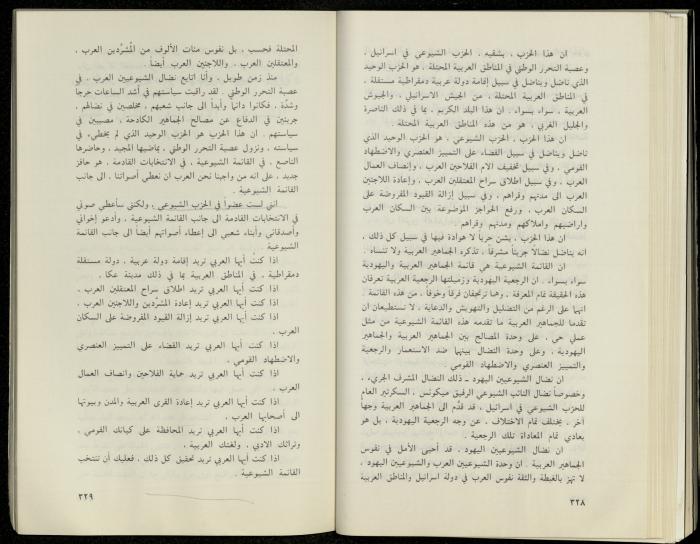 ان هذا الحزب ، بشقيه . الحزب الشيوعي في اسرائيل ،
وعصبة التحرر الوطني في المناطق العربية المحتلة ، هو الحزب الوحيد
الذي ناضل ويناضل في سبيل إقامة دولة عربية ديمقراطية مستقلة ،
في المناطق العربية المحتلة ، من الجيش الاسرائيلي ، والجيوش
العربية ، سواء بسواء . ان هذا البلد الكريم ، بما في ذلك الناصرة
والجليل الغربي ، هو من هذه المناطق العربية المحتلة .
ان هذا الحزب ، الحزب الشيوعي ، هو الحزب الوحيد الذي
ناضل ويناضل في سبيل القضاء على التمييز العنصري والاضطهاد
القومي . وفي سبيل تخفيف الام الفلاحين العرب ، وإنصاف العمال
العرب ، وفي سبيل اطلاق سراح المعتقلين العرب ، وإعادة اللاجئين
العرب الى مدنهم وقراهم ، وفي سبيل إزالة القيود المفروضة على
السكان العرب ، ورفع الحواجز الموضوعة بين السكان العرب
واراضيهم واملاكهم ومدنهم وقراهم .
ان هذا الحزب ، يشن حرباً لا هوادة فيها في سبيل كل ذلك ،
انه يناضل نضالاً جريئاً مشرفاً ، تذكره الجماهير العربية ولا تنساه .
ان القائمة الشيوعية هي قائمة الجماهير العربية واليهودية
سواء بسواء . ان الرجعية اليهودية وزميلتها الرجعية العربية تعرفان
هذه الحقيقة تمام المعرفة . وهما ترتجفان فرقاً وخوفاً ، من هذه القائمة .
انهما على الرغم من التضليل والتهويش والدعاية ، لا تستطيعان ان
تقدما للجماهير العربية ما تقدمه هذه القائمة الشيوعية من مثل
عملي حي ، على وحدة المصالح بين الجماهير العربية والجماهير
اليهودية ، وعلى وحدة النضال بينهما ضد الاستعمار والرجعية
والتمييز العنصري والاضطهاد القومي .
ان نضال الشيوعيين اليهود ـ ذلك النضال المشرف الجريء ،
وخصوصاً نضال النائب الشيوعي الرفيق ميكونس ، السكرتير العام
للحزب الشيوعي في اسرائيل ، قد قدَّم الى الجماهير العربية وجهاً
آخر ، يختلف تمام الاختلاف ، عن وجه الرجعية اليهودية ، بل هو
يعادي تمام المعاداة تلك الرجعية .
ان نضال الشيوعيين اليهود ، قد أحيى الأمل في نفوس
الجماهير العربية . ان وحدة الشيوعيين العرب والشيوعيين اليهود ،
لا تهز بالغبطة والثقة نفوس العرب في دولة اسرائيل والمناطق العربية
٣٢٨
المحتلة فحسب ، بل نفوس مئات الألوف من المُشرَّدين العرب ،
والمعتقلين العرب ، واللاجئين العرب أيضاً .
منذ زمن طويل ، وأنا اتابع نضال الشيوعيين العرب ، في
عصبة التحرر الوطني . لقد راقبت سياستهم في أشد الساعات حرجا
وشدّة ، فكانوا دائماً وأبداً الى جانب شعبهم ، مخلصين في نضالهم ،
جريئين في الدفاع عن مصالح الجماهير الكادحة ، مصيبين في
سياستهم . ان هذا الحزب هو الحزب الوحيد الذي لم يخطيء في
سياسته ، ونزول عصبة التحرر الوطني ، بماضيها المجيد ، وحاضرها
الناصع ، في القائمة الشيوعية ، في الانتخابات القادمة ، هو حافز
جديد ، على انه من واجبنا نحن العرب ان نعطي أصواتنا ، الى جانب
القائمة الشيوعية .
انني لست عضواً في الحزب الشيوعي ، ولكني سأعطي صوتي
في الانتخابات القادمة الى جانب القائمة الشيوعية ، وأدعو إخواني
وأصدقائي وأبناء شعبي الى إعطاء أصواتهم أيضاً الى جانب القائمة
الشيوعية .
اذا كنت أيها العربي تريد إقامة دولة عربية ، دولة مستقلة
ديمقراطية ، في المناطق العربية بما في ذلك مدينة عكا .
اذا كنت أيها العربي تريد اطلاق سراح المعتقلين العرب .
اذا كنت أيها العربي تريد إعادة المشرَّدين واللاجئين العرب .
اذا كنت أيها العربي تريد إزالة القيود المفروضة على السكان
العرب .
اذا كنت أيها العربي تريد القضاء على التمييز العنصري
والاضطهاد القومي .
اذا كنت أيها العربي تريد حماية الفلاحين وانصاف العمال
العرب .
اذا كنت أيها العربي تريد إعادة القرى العربية والمدن وبيوتها
الى أصحابها العرب .
اذا كنت أيها العربي تريد المحافظة على كيانك القومي ،
وتراثك الادبي ، ولغتك العربية .
اذا كنت أيها العربي تريد تحقيق كل ذلك ، فعليك أن تنتخب
القائمة الشيوعية .
٣٢٩